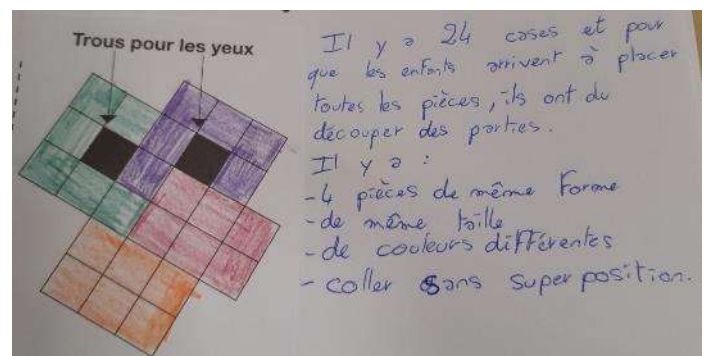 Trous pour les yeux
Il y a 24 cases et pour
que les enfants arrivent à placer
toutes les pièces, ils ont du
découper des parties.
Il y a :
- 4 pièces de même forme
- de même taille
- de couleurs différentes
- coller sans superposition.